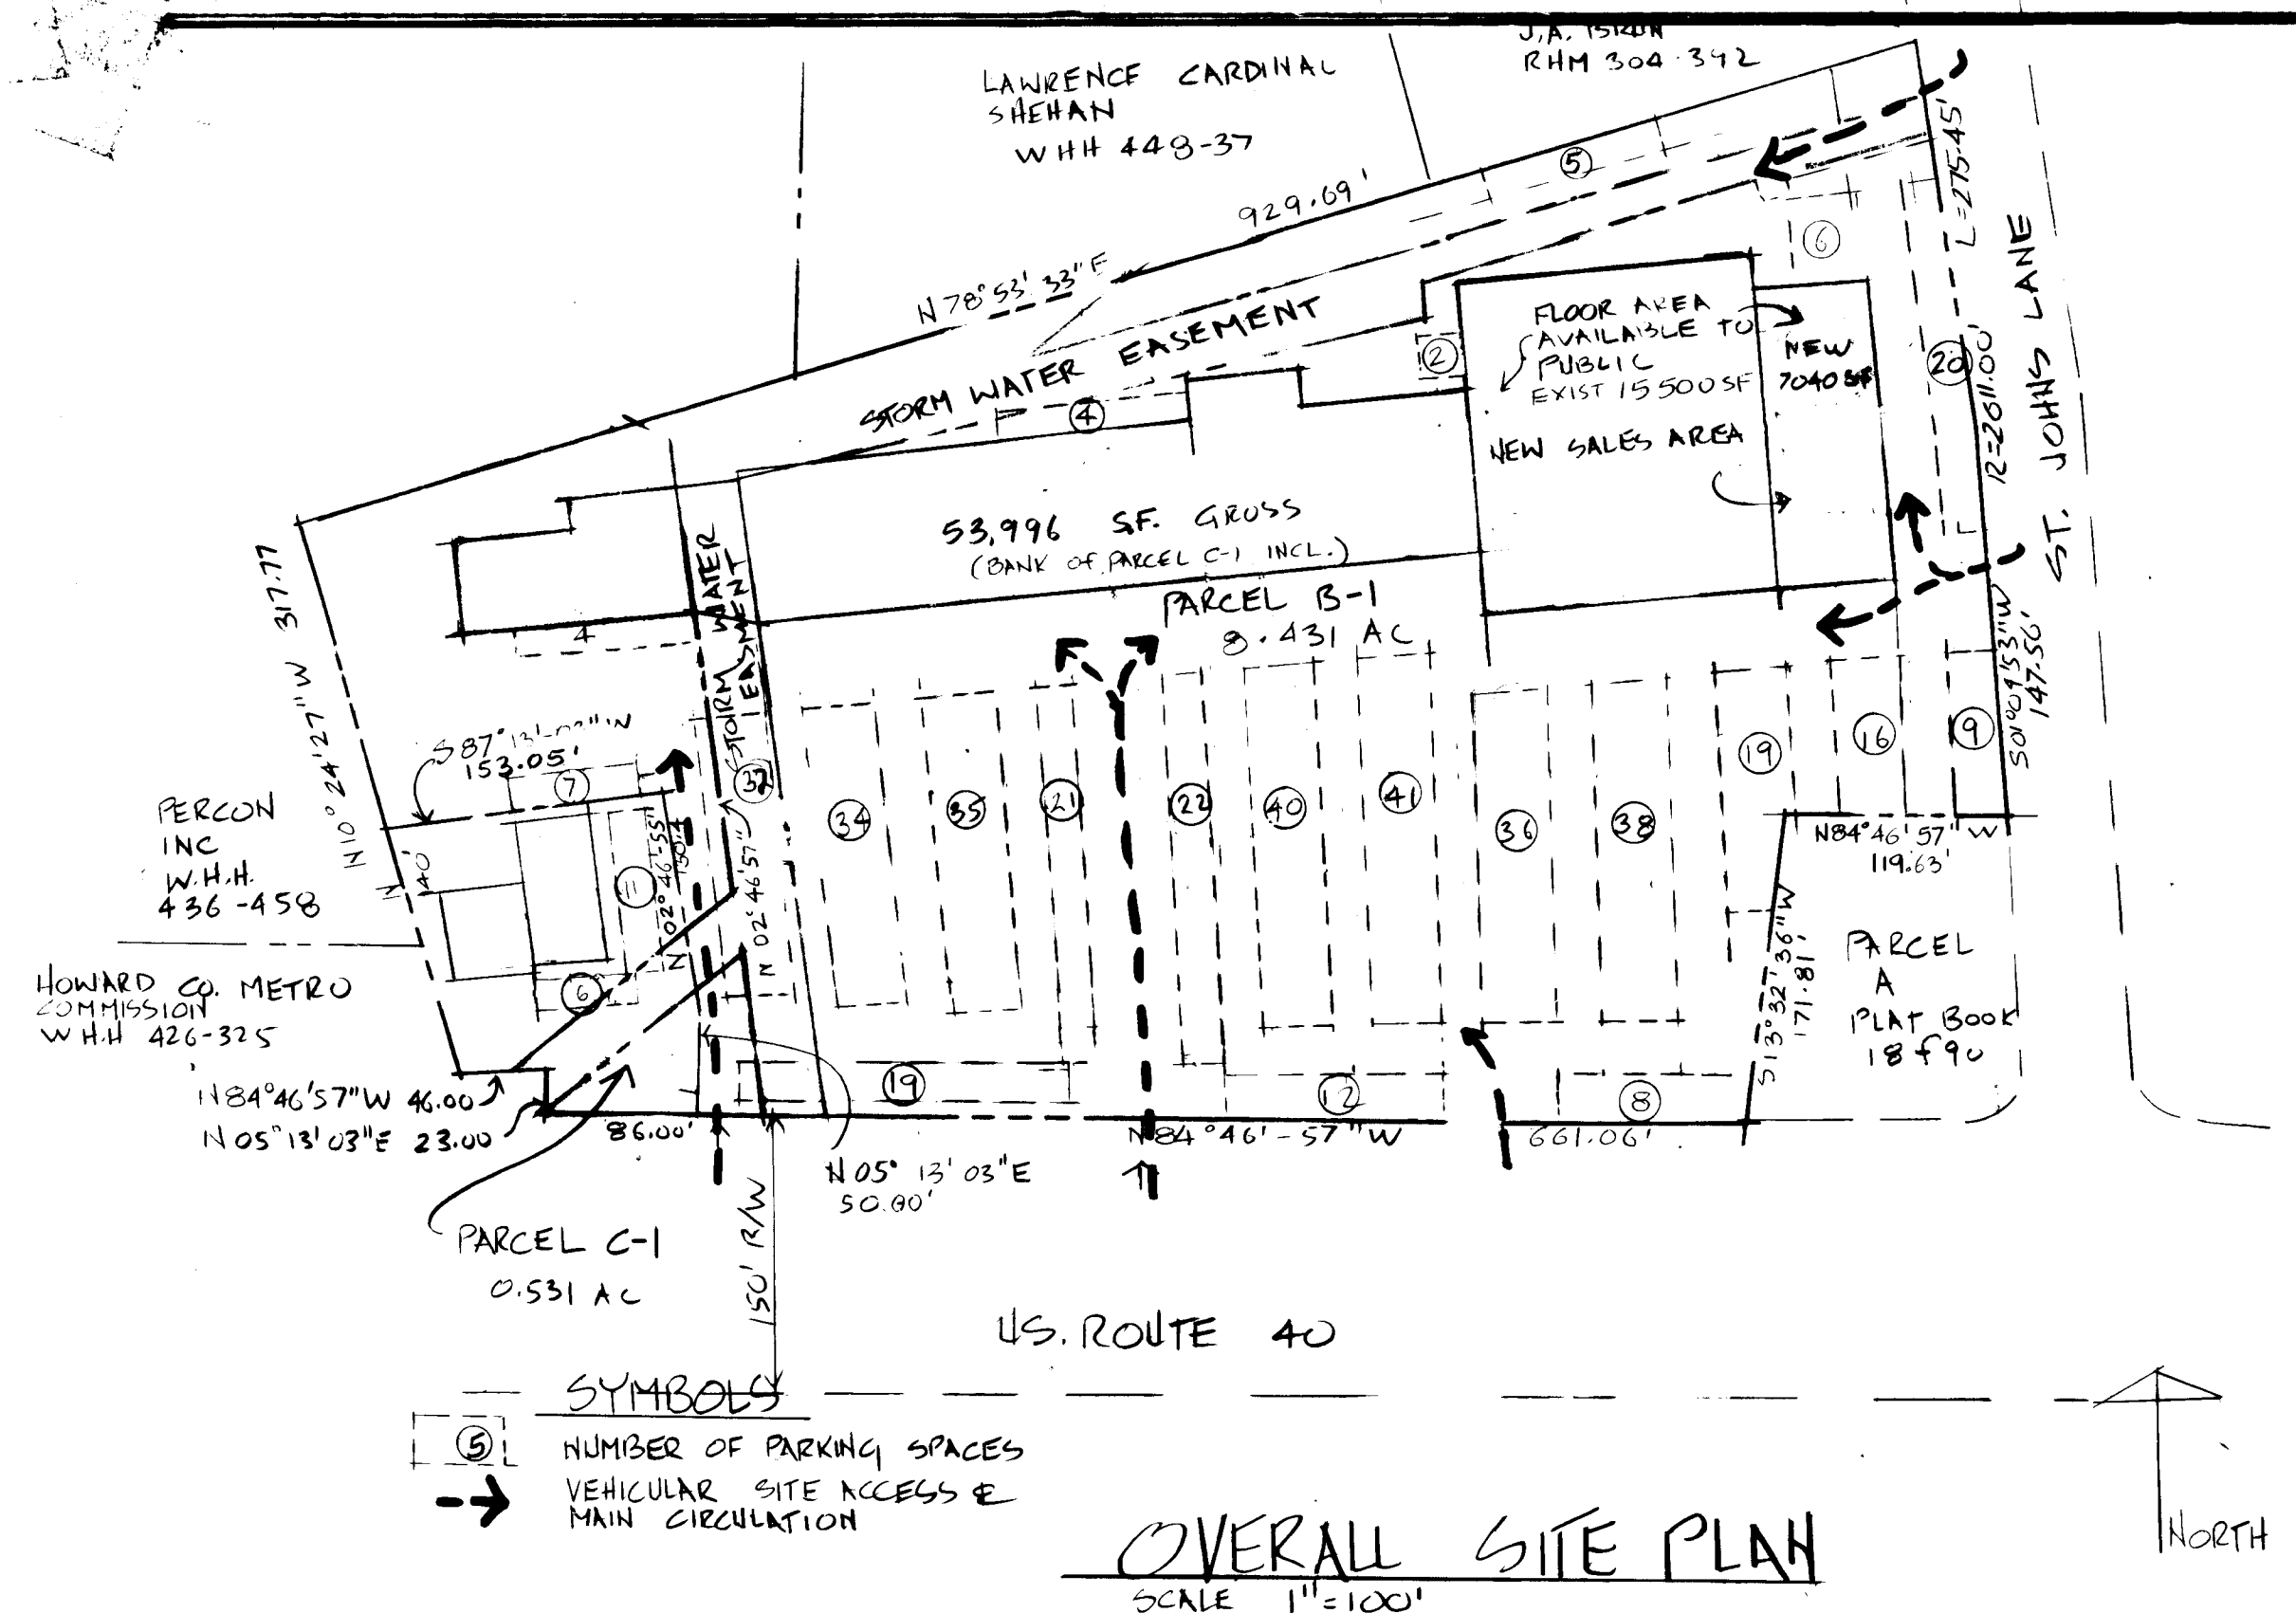 RHM 304-342
LAWRENCE CARDINAL
SHEHAN
WHH 448-37
929.69'
N 78° 53' 33" E
L=275.45'
R=2611.00'
ST. JOHNS LANE
5
6
STORM WATER EASEMENT
2
4
20
FLOOR AREA
AVAILABLE TO
PUBLIC
EXIST 15500 SF
NEW
7040 SF
NEW SALES AREA
53,996 S.F. GROSS
(BANK OF PARCEL C-1 INCL.)
PARCEL B-1
8.431 AC
STORM WATER
EASMENT
4
N 10° 24' 27" W 317.77
S 87° 13'
153.05'
7
PERCON
INC
W.H.H.
436-458
40'
11
N 02° 46'-55"
6
N 02° 46' 57"
32
34
35
21
22
40
41
36
38
19
16
9
S 01° 09' 53" W
147.56'
N84° 46' 57" W
119.63'
S 13° 32' 36" W
171.81'
PARCEL
A
PLAT BOOK
18 f 90
HOWARD CO. METRO
COMMISSION
W H.H 426-325
N84°46'57"W 46.00
N 05° 13' 03"E 23.00
86.00'
19
12
8
N 84° 46'-57" W
661.06'
N 05° 13' 03"E
50.00'
PARCEL C-1
0.531 AC
150' R/W
U.S. ROUTE 40
SYMBOLS
5 NUMBER OF PARKING SPACES
VEHICULAR SITE ACCESS &
MAIN CIRCULATION
NORTH
OVERALL SITE PLAN
SCALE 1"=100'